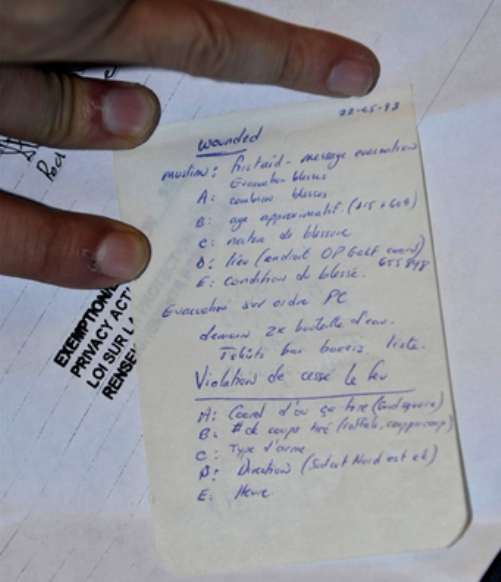 22-05-93
wounded
muslim: first aid - message evacuation
Evacuation blesses
A: combien blesses
B: age approximatif. (
C: nature de blessure
D: lieu (endroit OP GOLF coord)
655848
E: condition du blessé.
Evacuation sur ordre PC
demain 2x bouteille d'eau.
liste.
Violation de cesse le feu
A: Coord d'ou ça tire (
B: # de coups tiré (
C: Type d'arme
D: Direction (Sud est Nord est etc)
E: Heure
EXEMPTION
PRIVACY ACT
LOI SUR LA
RENSE